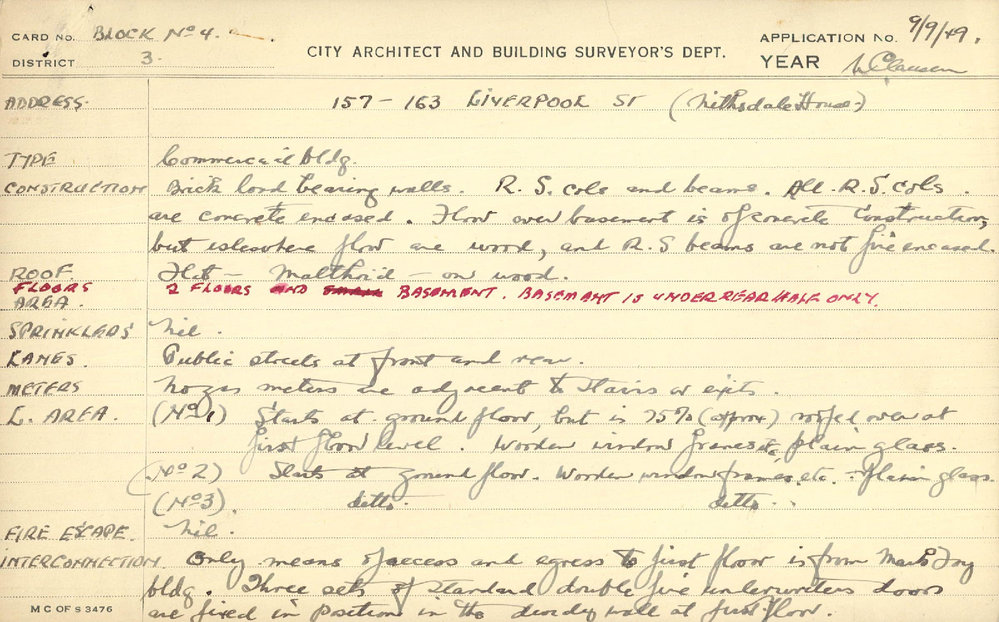 CARD No. BLOCK No 4.
APPLICATION No. 9/9/49.
DISTRICT 3.
CITY ARCHITECT AND BUILDING SURVEYOR'S DEPT.
YEAR
ADDRESS. 157 - 163 LIVERPOOL ST (Nithsdale House)
TYPE Commercial bldg.
CONSTRUCTION Brick load bearing walls. R. S. cols and beams. All R.S. cols.
are concrete encased. Floor over basement is of concrete construction,
but elsewhere floor are wood, and R.S beams are not fire encased.
ROOF. Flat - Malthoid - on wood.
FLOORS 2 FLOORS AND BASEMENT. BASEMANT IS UNDER REAR HALF ONLY.
AREA.
SPRINKLERS Nil.
LANES. Public streets at front and rear.
METERS No gas meters are adjacent to stairs or exits.
L. AREA. (No 1) Starts at ground floor, but is 75% (approx) roofed over at
first floor level. Wooden window frames etc plain glass.
(No 2) Starts at ground floor. Wooden window frames, etc. - plain glass.
(No 3). ditto. ditto.
FIRE ESCAPE. Nil.
INTERCONNECTION. Only means of access and egress to first floor is from Mark Foy
bldg. Three sets of standard double fire underwriters doors
are fixed in position in the dividing wall at first floor.
M C OF S 3476